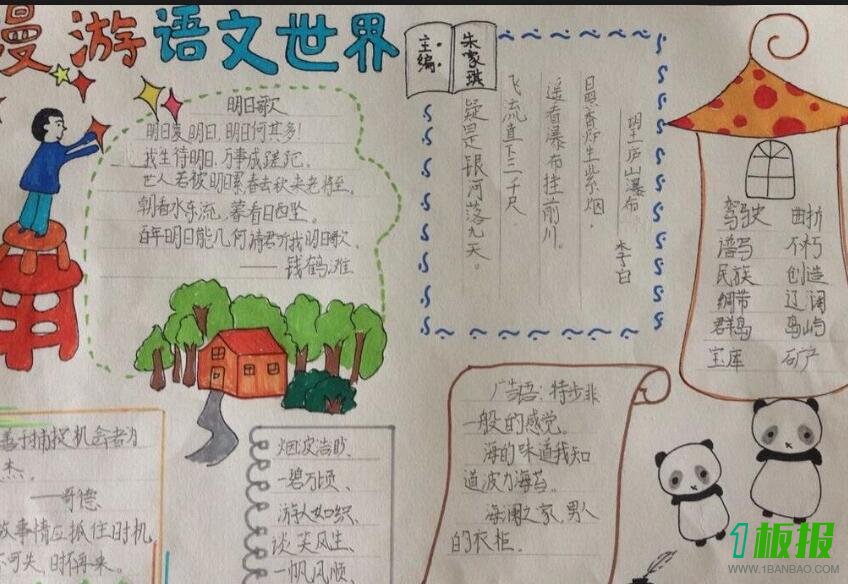 漫游语文世界
主编：
朱家琪
明日歌
明日复明日,明日何其多！
我生待明日,万事成蹉跎。
世人若被明日累,春去秋来老将至。
朝看水东流,暮看日西坠。
百年明日能几何,请君听我明日歌。
——钱鹤滩
望庐山瀑布
李白
日照香炉生紫烟，
遥看瀑布挂前川。
飞流直下三千尺，
疑是银河落九天。
驾驶 曲折
谱写 不朽
民族 创造
绸带 辽阔
群岛 岛屿
宝库 矿产
善于捕捉机会者为
杰。
——哥德
故事情应抓住时机
不可失,时不再来。
烟波浩渺、
一碧万顷、
游人如织、
谈笑风生、
一帆风顺、
广告语：特步非
一般的感觉。
海的味道我知
道波力海苔。
海澜之家,男人
的衣柜。
1板报
WWW.1BANBAO.COM